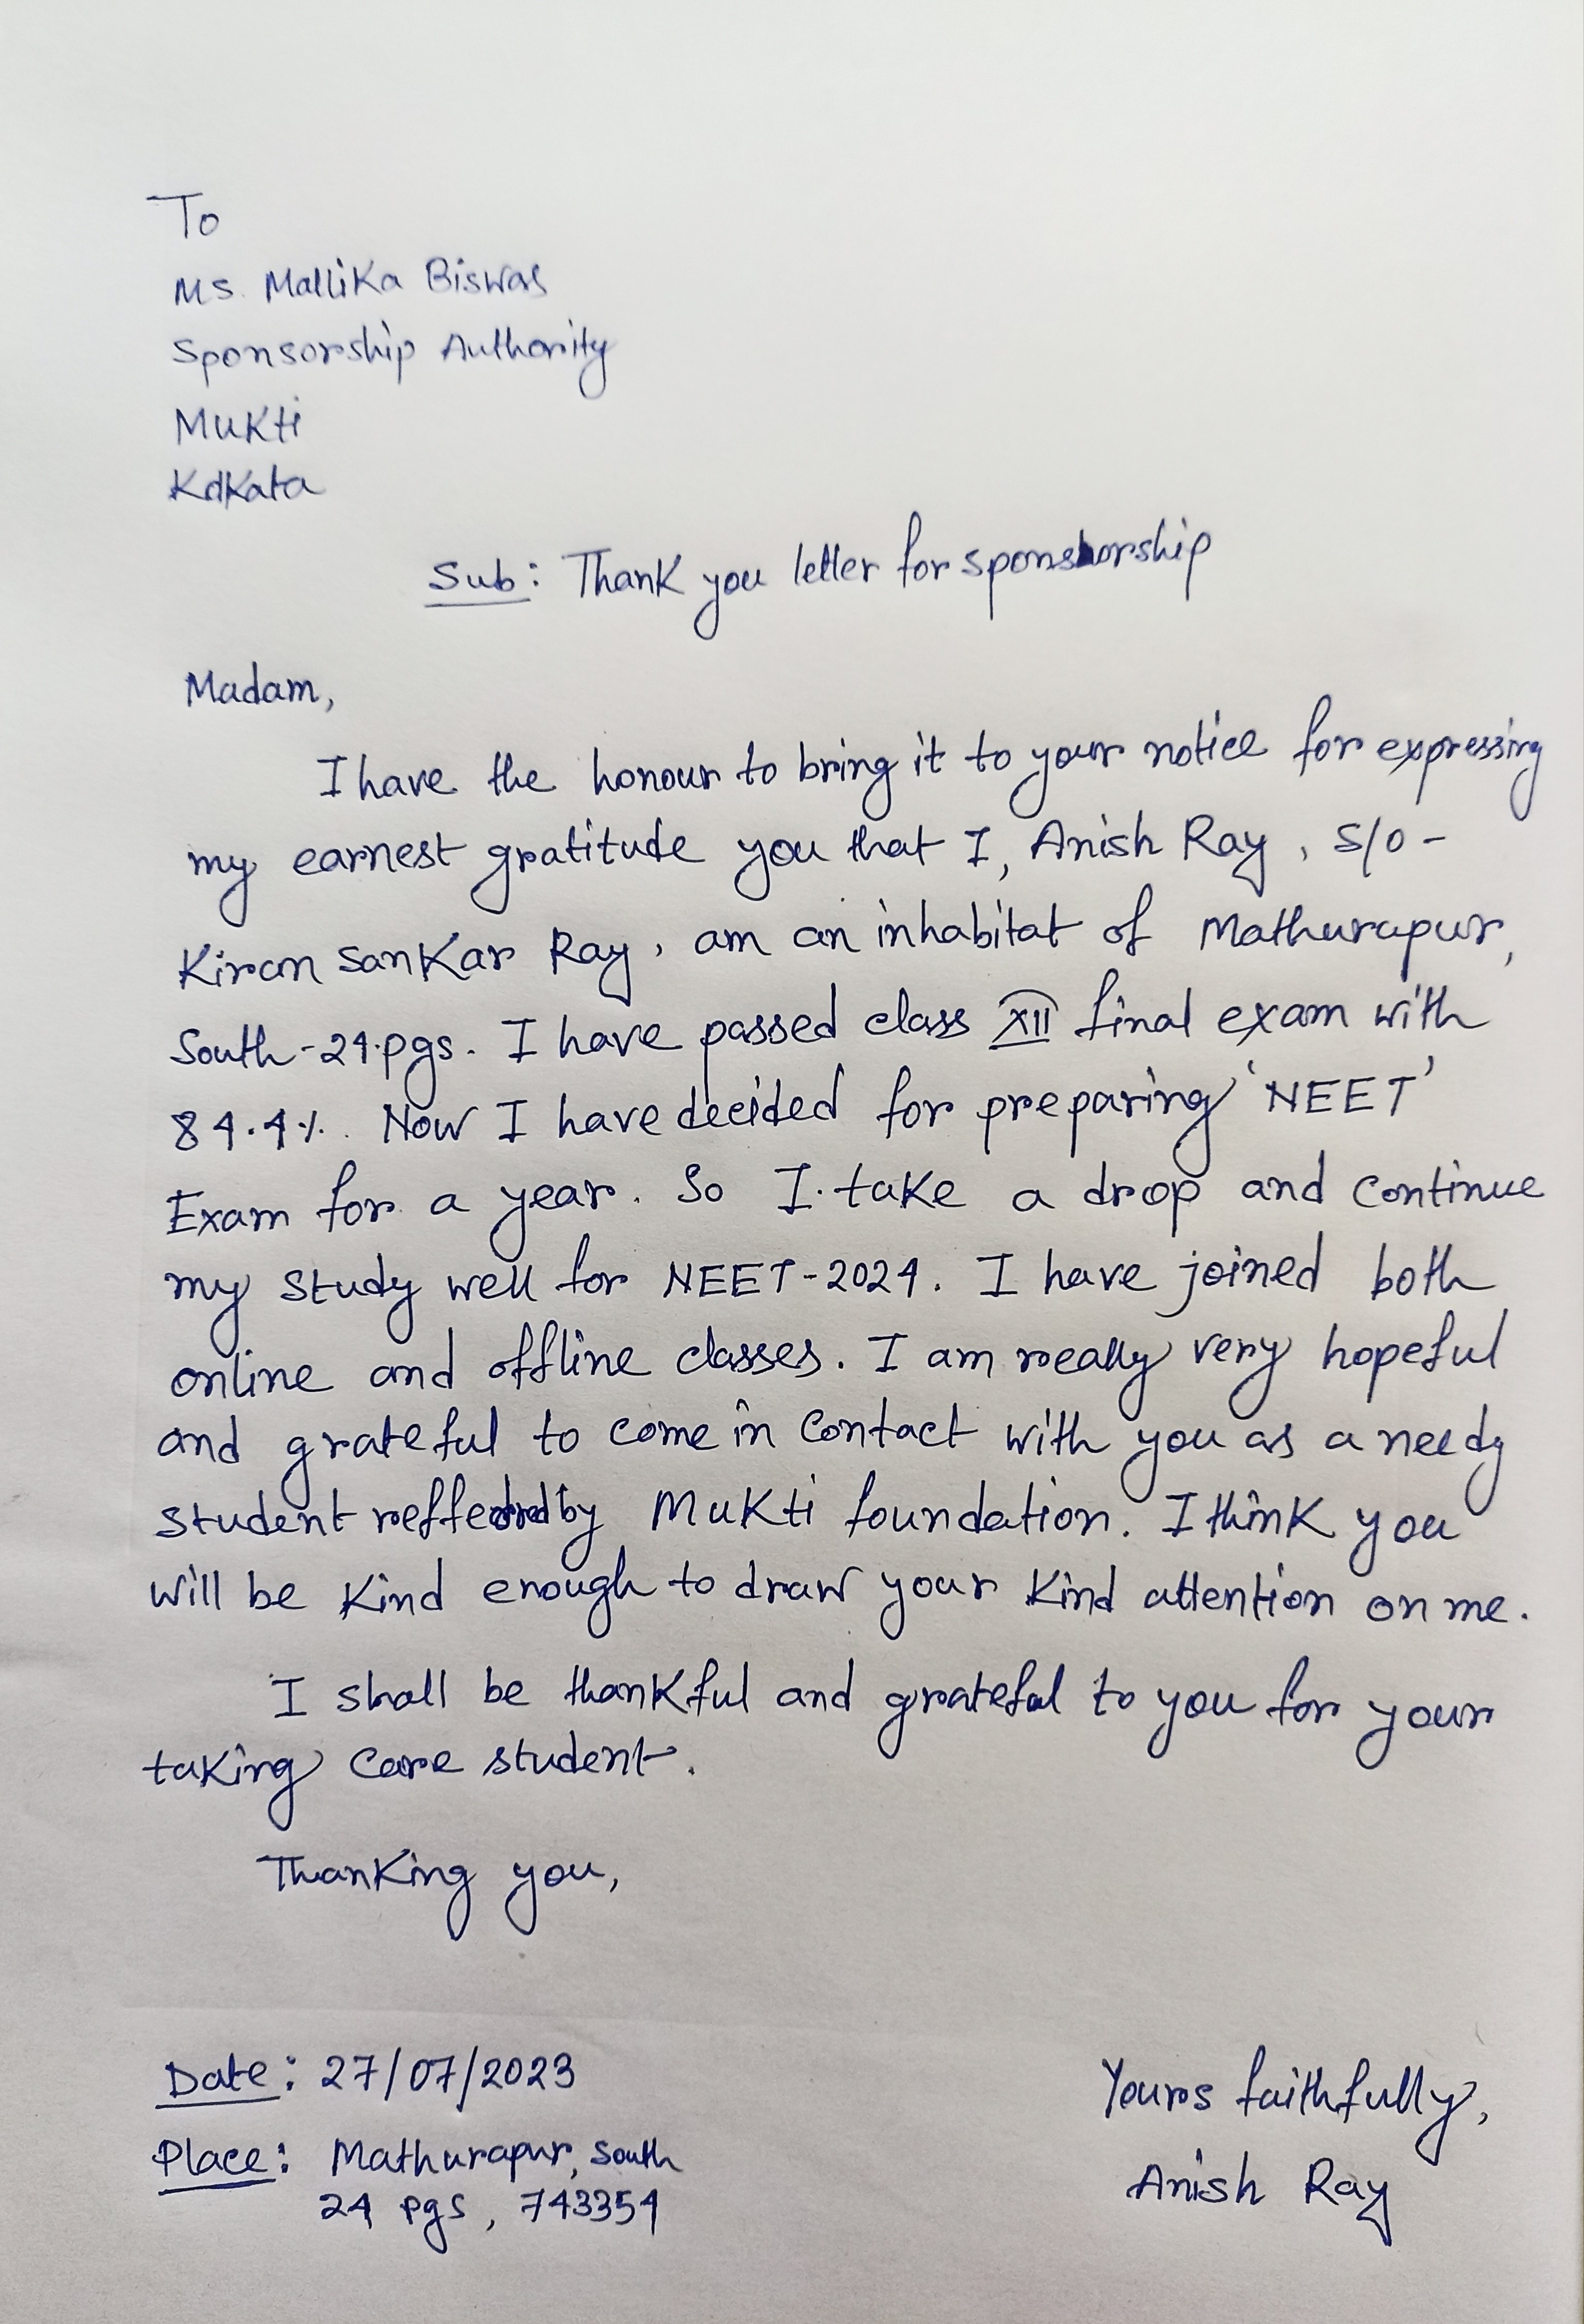 To
Ms. Mallika Biswas
Sponsorship Authority
Mukti
Kolkata
Sub: Thank you letter for sponshorship
Madam,
I have the honour to bring it to your notice for expressing
my earnest gratitude you that I, Anish Ray, S/o-
Kiran Sankar Ray, am an inhabitat of Mathurapur,
South-24.pgs. I have passed class XII final exam with
84.4%. Now I have decided for preparing 'NEET'
Exam for a year. So I take a drop and continue
my study well for NEET-2024. I have joined both
online and offline classes. I am really very hopeful
and grateful to come in contact with you as a needy
student by Mukti foundation. I think you
will be kind enough to draw your kind attention on me.
I shall be thankful and grateful to you for your
taking care student.
Thanking you,
Date: 27/07/2023
Place: Mathurapur, South
24 pgs, 743354
Yours faithfully,
Anish Ray